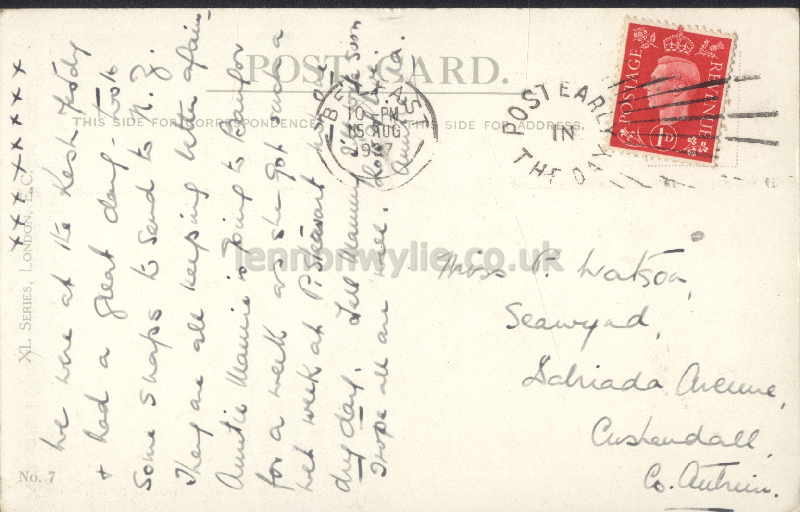 POST CARD.
THIS SIDE FOR CORRESPONDENCE
THIS SIDE FOR ADDRESS.
BELFAST
10 - PM
15 AUG
POST EARLY
IN
THE DAY
POSTAGE
REVENUE
1D
Miss P. Watson,
Seawynd,
Dalriada Avenue,
Cushendall,
Co. Antrim.
x x x x x x x x x
We were at the Kesh today
+ had a great day - took
some snaps to send to N.Z.
They are all keeping better again.
Auntie Mamie is going to Bangor
for a week as she got such a
wet week at P. Stewart
dry day. Tell Mammy I'll write soon
Hope all are well.
XL SERIES, LONDON, E.C.
No. 7
lennonwylie.co.uk